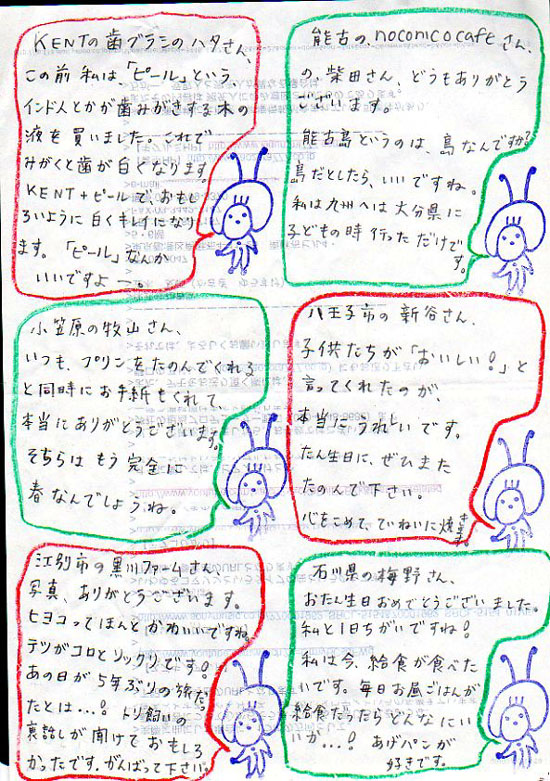 KENTの歯ブラシのハタさん、
この前私は「ピール」という、
インド人とかが歯みがきする木の
液を買いました。これで
みがくと歯が白くなります。
KENT+ピールで、おもし
ろいように白くキレイになり
ます。「ピール」なんか
いいですよー。
能古のnoconicocafeさん、
の、柴田さん、どうもありがとう
ございます。
能古島というのは、島なんですか?
島だとしたら、いいですね。
私は九州へは大分県に
子どもの時行っただけで
す。
小笠原の牧山さん、
いつも、プリンをたのんでくれる
と同時にお手紙もくれて、
本当にありがとうございます。
そちらはもう完全に
春なんでしょうね。
八王子市の新谷さん、
子供たちが「おいしい!」と
言ってくれたのが、
本当にうれしいです。
たん生日に、ぜひまた
たのんで下さい。
心をこめて、ていねいに焼きます。
江別市の黒川ファームさん、
写真、ありがとうございます。
ヒヨコってほんとかわいいですね。
テツがコロとソックリです!
あの日が5年ぶりの旅だっ
たとは…! トリ飼いの
裏話しが聞けておもしろ
かったです。がんばって下さい。
石川県の梅野さん、
おたん生日おめでとうございました。
私と1日ちがいですね!
私は今、給食が食べた
いです。毎日お昼ごはんが
給食だったらどんなにいい
か…! あげパンが
好きです。